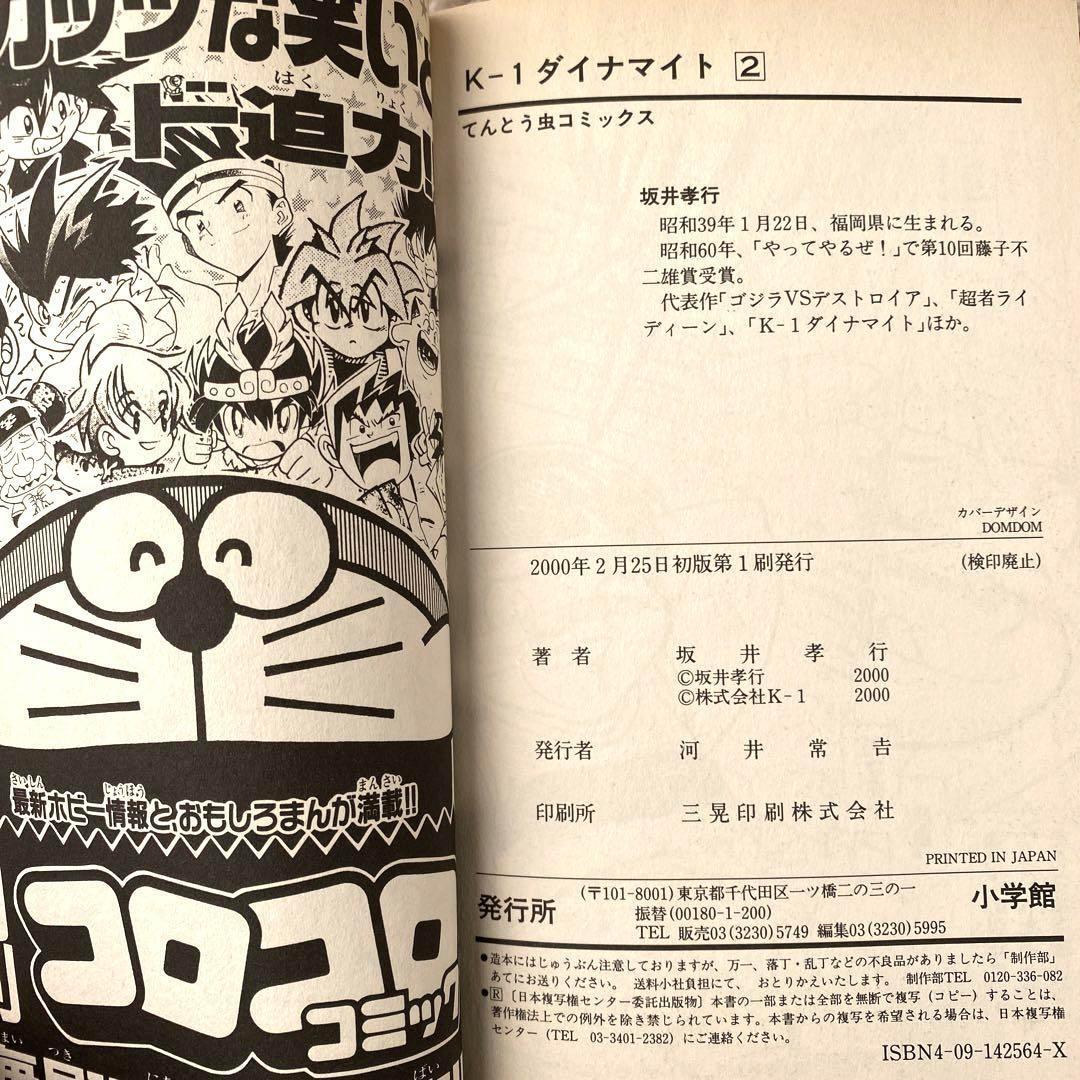 ガッツな笑いと
はく りょく
ド迫力!!
さいしん じょうほう まんさい
最新ホビー情報と、おもしろまんが満載!!
コロコロ
コミック
K-1ダイナマイト 2
てんとう虫コミックス
坂井孝行
昭和39年1月22日、福岡県に生まれる。
昭和60年、「やってやるぜ!」で第10回藤子不
二雄賞受賞。
代表作「ゴジラVSデストロイア」、「超者ライ
ディーン」、「K-1ダイナマイト」ほか。
カバーデザイン
DOMDOM
2000年2月25日初版第1刷発行 (検印廃止)
著者 坂井孝行
©坂井孝行 2000
©株式会社K-1 2000
発行者 河井常吉
印刷所 三晃印刷株式会社
PRINTED IN JAPAN
発行所 (〒101-8001)東京都千代田区一ツ橋二の三の一 小学館
振替(00180-1-200)
TEL 販売03(3230)5749 編集03(3230)5995
●造本にはじゅうぶん注意しておりますが、万一、落丁・乱丁などの不良品がありましたら「制作部」
あてにお送りください。 送料小社負担にて、 おとりかえいたします。 制作部TEL 0120-336-082
●R〔日本複写権センター委託出版物〕本書の一部または全部を無断で複写(コピー)することは、
著作権法上での例外を除き禁じられています。本書からの複写を希望される場合は、日本複写権
センター(TEL 03-3401-2382)にご連絡ください。
ISBN4-09-142564-X